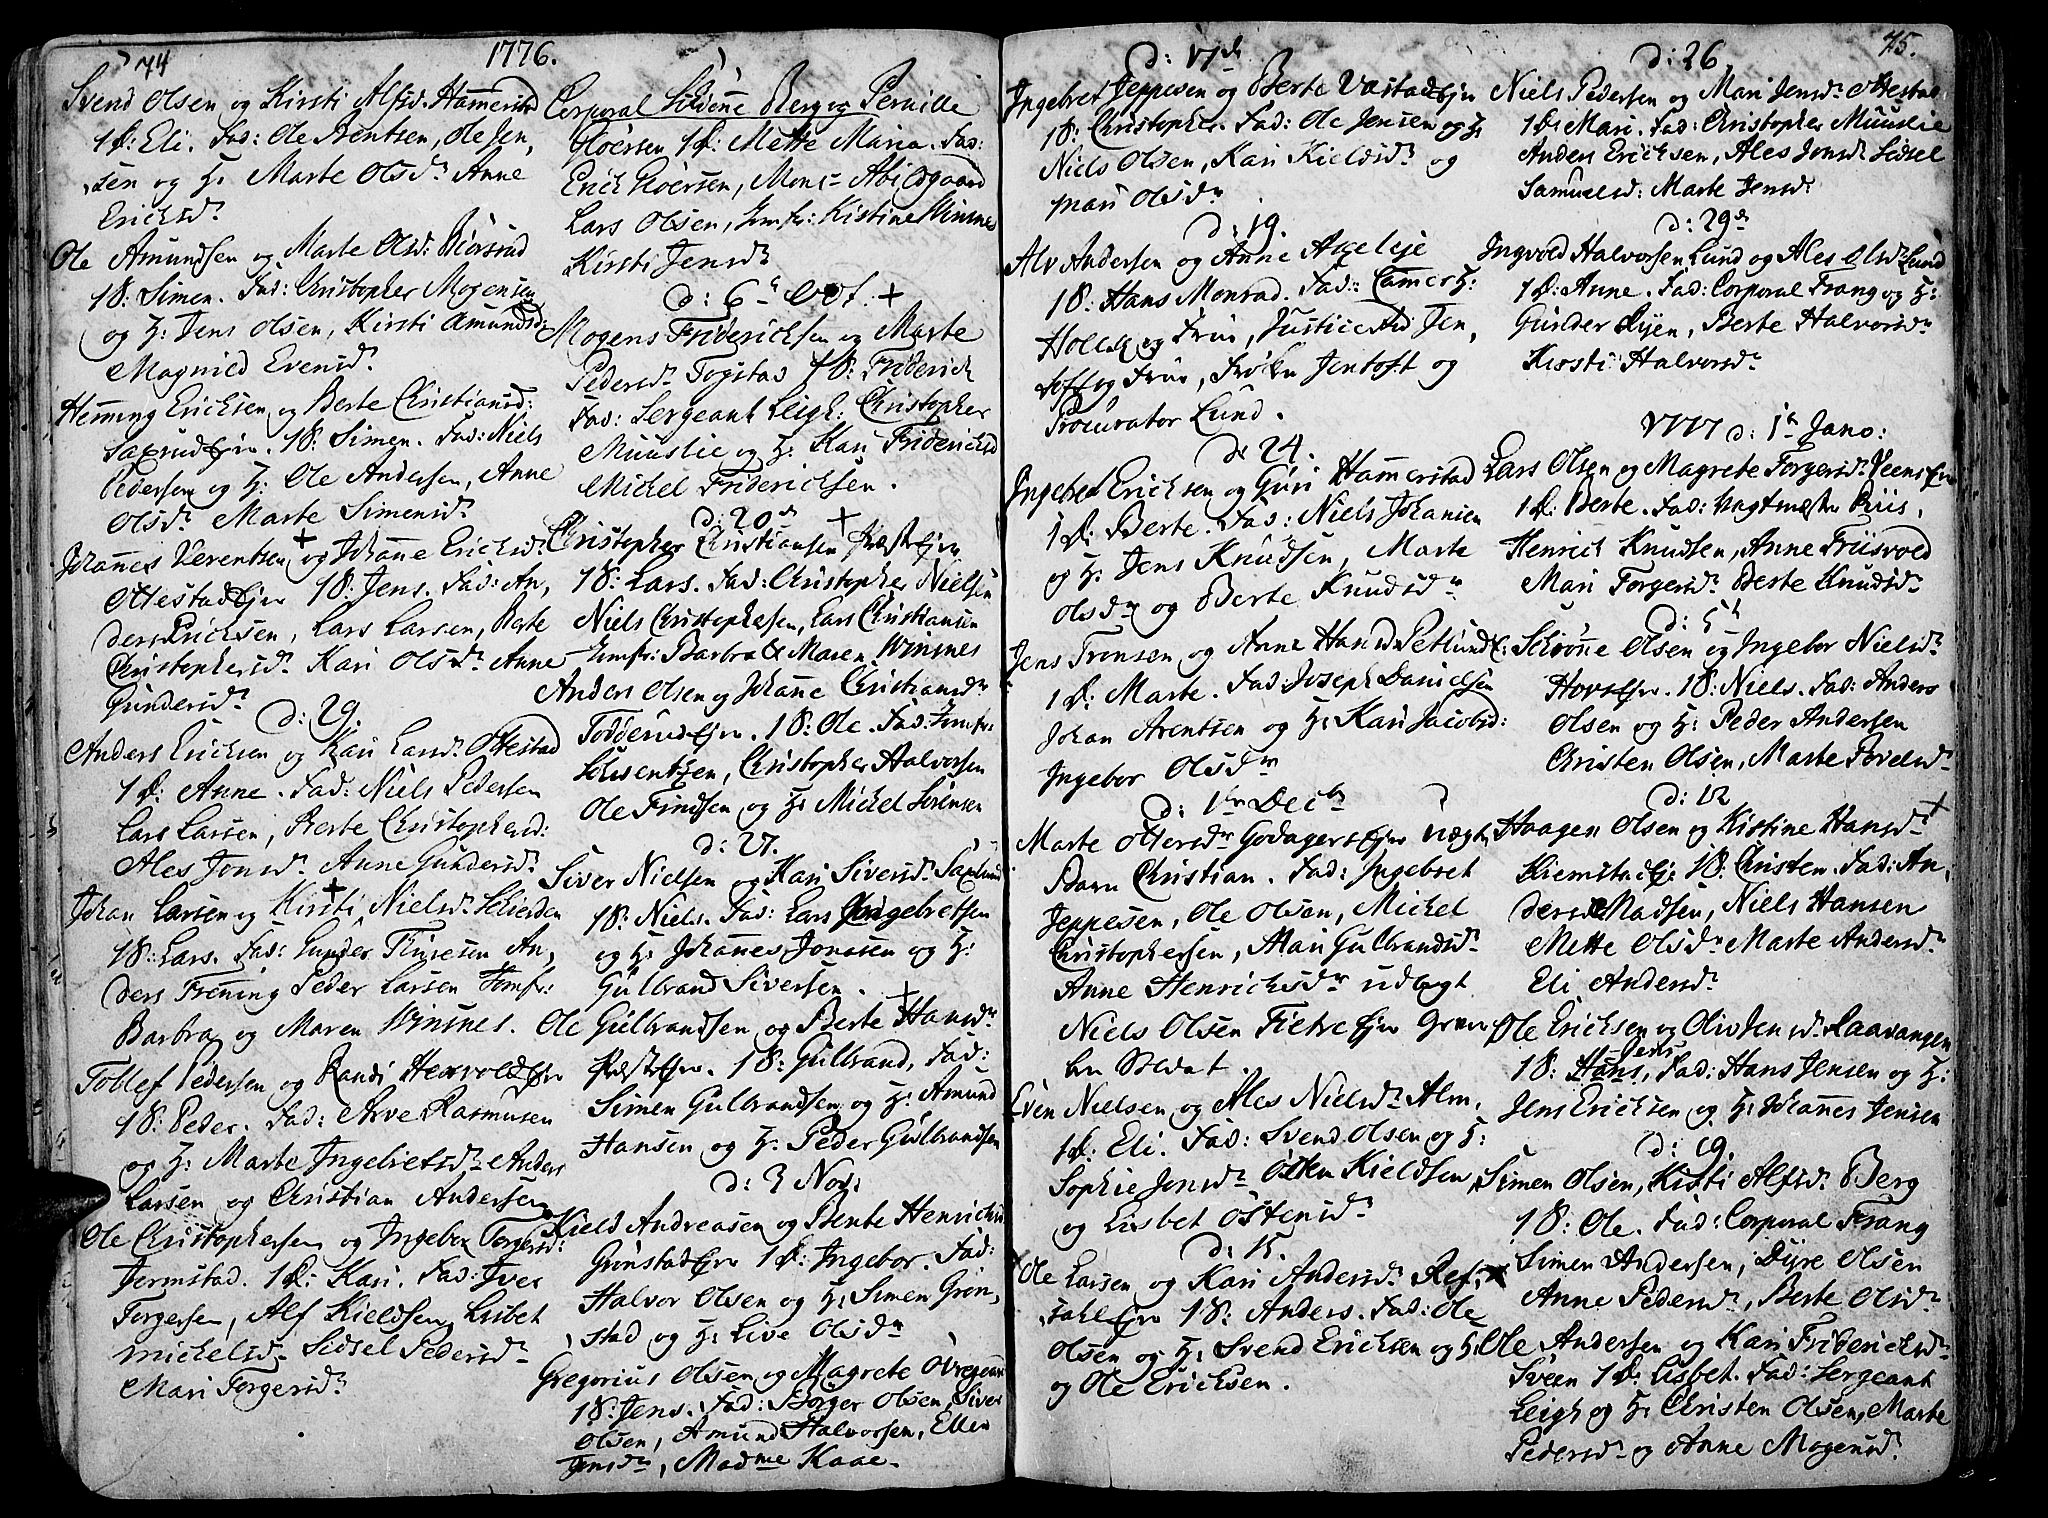 74
1776.
Svend Olsen og Kirsti Alfsd. Hammerstad
1 D: Eli. Fad: Ole Arentsen, Ole Jen,
sen og H: Marte Olsdr Anne
Ericksdr
Ole Amundsen og Marte Olsd: Biørsrud
1 S: Simen. Fad: Christopher Mogensen
og H: Jens Olsen, Kirsti Amundsd:
Magnild Evensdr
Henning Ericksen og Berte Christiansd:
Saxrud Ejer. 1 S: Simen. Fad: Niels
Pedersen og H: Ole Andersen, Anne
Olsdr Marte Simensdr
Johannes Verentsen og Johanne Ericksdr
Ottestad Ejer 1 S: Jens. Fad: An,
ders Ericksen, Lars Larsen, Berte
Christophersdr Kari Olsdr Anne
Gundersdr
d: 29.
Anders Ericksen og Kari Larsdr Ottestad
1 D: Anne. Fad: Niels Pedersen
Lars Larsen, Berte Christophersd:
Ales Jonsdr Anne Gundersdr
Johan Larsen og Kirsti Nielsdr Schierden
1 S: Lars. Fad: Gunder Thuresen An,
ders Frening Peder Larsen Jomfr:
Barbra og Maren Winsnes.
Tollef Pedersen og Randi Hexvold Ejer
1 S: Peder. Fad: Arve Rasmusen
og H: Marte Ingebretsdr Anders
Larsen og Christian Andersen
Ole Christophersen og Ingebor Torgersd:
Jermstad. 1 D: Kari. Fad: Iver
Torgersen, Alf Kieldsen Lisbet
Michelsd. Sidsel Pedersdr
Mari Torgersdr
Corporal Berg og Pernille
Gloersen 1 D: Mette Maria. Fad:
Erick Gloersen, Mons: Abildgaard
Lars Olsen, Jomfr: Kistine Winsnes
Kirsti Jensdr
d: 6h Oct.
Mogens Friderichsen og Marte
Pedersdr Togstad 1 S: Friderich
Fad: Sergeant Leigh: Christopher
Muuslie og H: Kari Friderichsd
Michel Friderichsen.
d: 20de
Christopher Christiansen Præst Ejer
1 S: Lars. Fad: Christopher Nielsen
Niels Christophersen, Lars Christiansen
Jomfr: Barbra & Maren Winsnes
Anders Olsen og Johanne Christiansdr
Todderud Ejer. 1 S: Ole. Fad: Jomfr:
Schventzen, Christopher Halvorsen
Ole Findsen, og H: Michel Sørensen
d: 27.
Siver Nielsen og Kari Siversdr Saxlund
1 S: Niels. Fad: Lars Ingebretsen
og H: Johannes Jonasen og H:
Gulbrand Siversen.
Ole Gulbrandsen og Berte Hansdr
Præst Ejer. 1 S: Gulbrand. Fad:
Simen Gulbrandsen og H: Amund
Hansen og H: Peder Gulbrandsen
d: 3 Nov:
Kield Andreasen og Bente Henrichsd
Grønstad Ejer 1 D: Ingebor. Fad:
Halvor Olsen og H: Simen Grøn,
stad og H: Live Olsdr
Gregorius Olsen og Magrete Øvregaard
1 S: Jens. Fad: Borger Olsen, Siver
Olsen, Amund Halvorsen, Ellen
Jensdr, Madme Kaae.
75.
d: 17de
Ingebret Jeppesen og Berte Vastad Ejer
1 S: Christopher. Fad: Ole Jensen og H:
Niels Olsen, Kari Kieldsdr og
Mari Olsdr
d: 19.
Alv Andersen og Anne Axeleje
1 S: Hans Monrad. Fad: Camerh:
Holck og Frue, Justice Rd Jen,
toft og Frue, Frøken Jentoft og
Procurator Lund.
d: 24.
Ingebret Ericksen og Guri Hammerstad
1 D: Berte. Fad: Niels Johansen
og H: Jens Knudsen, Marte
Olsdr og Berte Knudsdr
Jens Tronsen og Anne Hansdr Petlund E:
1 D: Marte. Fad: Joseph Danielsen
Johan Arentsen og H: Kari Jacobsd:
Ingebor Olsdr
d: 1de Decbr
Marte Ottersdr Godager Ejer uægte
Barn Christian. Fad: Ingebret
Jeppesen, Ole Olsen, Michel
Christophersen, Mari Gulbrandsdr
Anne Henrichsdr udlagt
Niels Olsen Fietre Ejer
Soldat.
Even Nielsen og Ales Nielsdr Alm.
1 D: Eli. Fad: Svend Olsen og H:
Sophie Jonsdr Østen Kieldsen
og Lisbet Østensdr
d: 15.
Ole Larsen og Kari Andersdr Ref,
sahl Ejer 1 S: Anders. Fad: Ole
Olsen og H: Svend Ericksen og H:
og Ole Ericksen.
d: 26
Niels Pedersen og Mari Jensdr Ottestad
1 D: Mari. Fad: Christopher Muuslie
Anders Ericksen, Ales Jonsd: Sidsel
Samuelsd: Marte Jensdr
d: 29de
Ingvold Halvorsen Lund og Ales Olsdr Lund
1 D: Anne. Fad: Corporal Frang og H:
Gulder Ryen, Berte Halvorsdr
Kirsti Halvorsdr
1777 d: 1te Jano:
Lars Olsen og Magrete Torgersdr Veens Ejer
1 D: Berte. Fad: Vagtmester Riis,
Henrich Knudsen, Anne Friisvold
Mari Torgersdr Berte Knudsdr
d: 5te
Schiønne Olsen og Ingebor Nielsdr
Hovs Ejer. 1 S: Niels. Fad: Anders
Olsen og H: Peder Andersen
Christen Olsen, Marte Povelsdr
d: 12
Haagen Olsen og Kistine Hansdr
Kiemstad Ej: 1 S: Christen. Fad: An,
ders Madsen, Niels Hansen
Mette Olsdr Marte Andersdr
Eli Andersdr
Ole Ericksen og Oliv Jensdr Raavangen
1 S: Hans Jens. Fad: Hans Jensen og H:
Jens Ericksen og H: Johannes Jensen
d: 19.
Simen Olsen, Kisti Alfsdr Berg
1 S: Ole. Fad: Corporal Frang
Simen Andersen, Dyre Olsen
Anne Pedersdr, Berte Olsdr
Ole Andersen og Kari Friderichsdr
Sveen 1 D: Lisbet. Fad: Sergeant
Leigh og H: Christen Olsen, Marte
Pedersdr og Anne Mogensdr